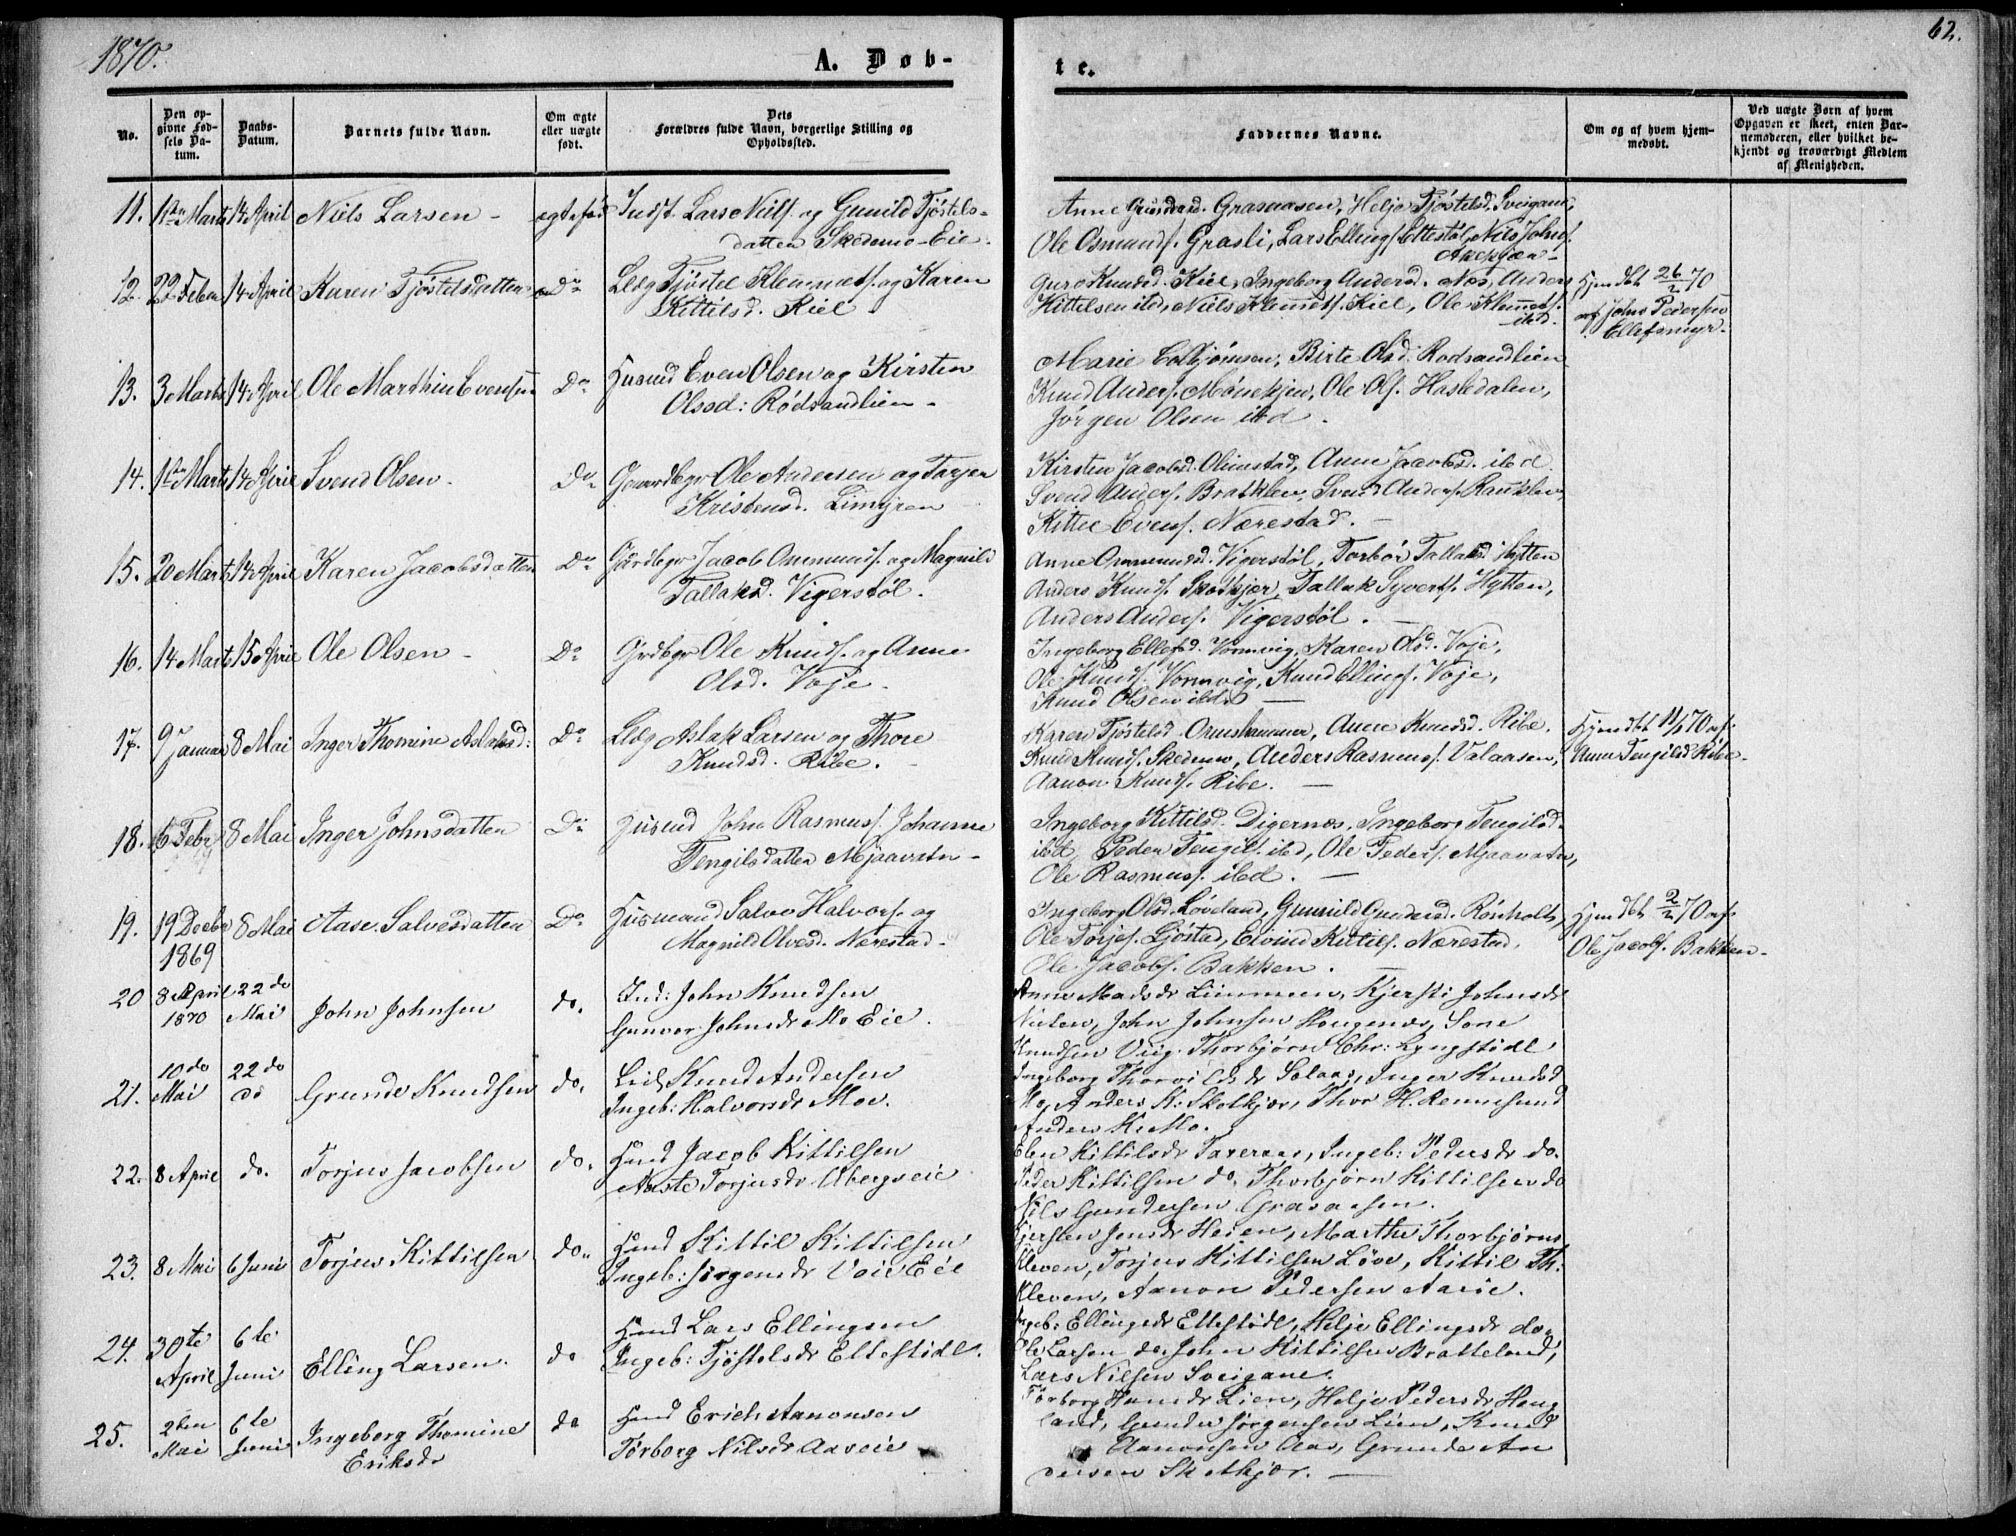 1870.
A. Døb-
te.
62.
No.
Den op-
givne Fød-
sels Da-
tum.
Daabs-
Datum.
Barnets fulde Navn.
Om ægte
eller uægte
født.
Dets
Forældres fulde Navn, borgerlige Stilling og
Opholdssted.
Faddernes Navne.
Om og af hvem hjem-
medøbt.
Ved uægte Børn af hvem
Opgaven er skeet, enten Bar-
nemoderen, eller hvilket be-
kjendt og troværdigt Medlem
af Menigheden.
11. 1ste Marts 14 April Niels Larsen - ægte fød Indst. Lars Niels. og Gunild Tjøstels-
datten Skedemo-Eie.
Anne Grundesd. Grasaasen, Helje Tjøstelsd. Sveigane,
Ole Osmunds. Grasli, Lars Ellings. Ettestøl, Nils Johns.
12. 22 Febr 14 April Karen Tjøstelsdatten Do Llæg Tjøstel Klemmets. og Karen
Kittilsd. Kiel
Guro Knudsd. Kiel, Ingeborg Andersd. Næs, Anders
Kittelsen ibd, Niels Klemmets. Kiel, Ole Klemmets.
ibd.
Hjemdbt 26/2 70
af John Pedersen
Ellefsmyr.
13. 3 Marts 14 April Ole Marthin Evensen Do Husmd Even Olsen og Kirsten
Olsd: Rødsandlien -
Marie Torbjørnsen, Birte Olsd. Rødsandlien
Knud Anders. Mønekjen, Ole Ols. Hasledalen,
Jørgen Olsen ibd.
14. 1ste Marts 14 April Svend Olsen - Do Gaardbgr Ole Andersen og Torjer
Kristensd. Limyren
Kirsten Jacobsd. Olimstad, Anne Jacobsd. ibd.
Svend Anders. Bratklev, Svend Anders. Rauklev
Kittel Evens. Nærestad. -
15. 20 Marts 14 April Karen Jacobsdatten Do Gaardbgr Jacob Ommunds. og Magnild
Tallaksd. Vigerstøl.
Anne Ommundsd. Vigerstøl, Torbør Tallaksd. Hytten
Anders Knuds. Skotkjær, Tallak Syverts. Hytten,
Anders Anders. Vigerstøl. -
16. 14 Marts 15 April Ole Olsen - Do Grdbgr Ole Knuds. og Anne
Olsd. Voje -
Ingeborg Ellefsd. Vormvig, Karen Olsd. Voje,
Ole Knuds. Vormvig, Knud Ellings. Voje,
Knud Olsen ibd. -
17. 9 Januar 8 Mai Inger Thomine Aslaksd: Do Llæg Aslak Larsen og Thore
Knudsd. Ribe.
Karen Tjøstelsd. Ormshammer, Anne Knudsd. Ribe.
Knud Knuds. Skedemo, Anders Rasmus. Valaasen,
Aanon Knuds. Ribe. -
Hjemdbt 11/1 70 af
Anne Tengilsd Ribe.
18. 6 Febr 8 Mai Inger Johnsdatten Do Husmd John Rasmus. Johanne
Tengilsdatten Mjaavatn -
Ingeborg Kittilsd. Digernæs, Ingeborg Tengilsd.
ibd, Peder Tengils. ibd, Ole Peders. Mjaavatn,
Ole Rasmus. ibd. -
19. 19 Decbr 8 Mai Aase Salvesdatten Do Husmand Salve Halvors. og
1869
Magnild Olvesd. Nærestad -
Ingeborg Olsd. Løveland, Gunnild Gundersd. Rønholt,
Ole Torjes. Ljøstad, Eivind Kittils. Nærestad,
Ole Jacobs. Bakken. -
Hjemdbt 2/2 70 af
Ole Jacobs. Bakken -
20 8 April 22 do John Johnsen do. Ind: John Knudsen
1870 Mai
Gunvor Johnsdr Mo Eie.
Anne Madsdr Limmen, Kjersti Johnsdr
John Johnsen Hougenæs, Sone
Knudsen Viig. Thorbjørn Chr: Lyngstødl.
21. 10do 22 do Grunde Knudsen do. Knud Andersen
Mai do
Ingeb: Halvorsdr Moe.
Ingeborg Thorvildsdr Solaas, Inger Knudsd
Mo, Anders K: Skotkjær, Thor H. Rennesund
Anders K: Mo.
22. 8 April do. Torjus Jacobsen do. Husmd Jacob Kittilsen
Aaste Torjusdr Ubergseie
Elen Kittilsdr Taxeraas, Ingeb: Pedersdr do.
Peder Kittilsen do, Thorbjørn Kittilsen do
Nils Gundersen Grasaasen.
23. 8 Mai 6 Juni Torjus Kittilsen do. Husmd Kittil Kittilsen
Ingeb: Jørgensdr Voie Eie
Kjersten Jensdr Heien, Marthe Thorbjørns
Kleven, Torjus Kittilsen Løve, Kittil Th.
Kleven, Aanon Pedersen Aasie.
24. 30te 6te Elling Larsen. do Husmd Lars Ellingsen
April Juni
Ingeb: Tjøstelsdr Ettestødl.
Ingeb: Ellingsdr Ettestødl, Helje Ellingsdr do.
Ole Larsen do, John Kittilsen Bratteland,
Lars Nilsen Sveigane.
25. 2den 6te Ingeborg Thomine do Husmd Erich Aanonsen
Mai Juni Eriksdr
Tørborg Nilsdr Aaseie
Tørborg Lien, Helje Pedersdr Houg
land, Gunder Jørgensen Lien, Knud
Aanonsen Aas, Grunde An
dersen Skotkjær. -